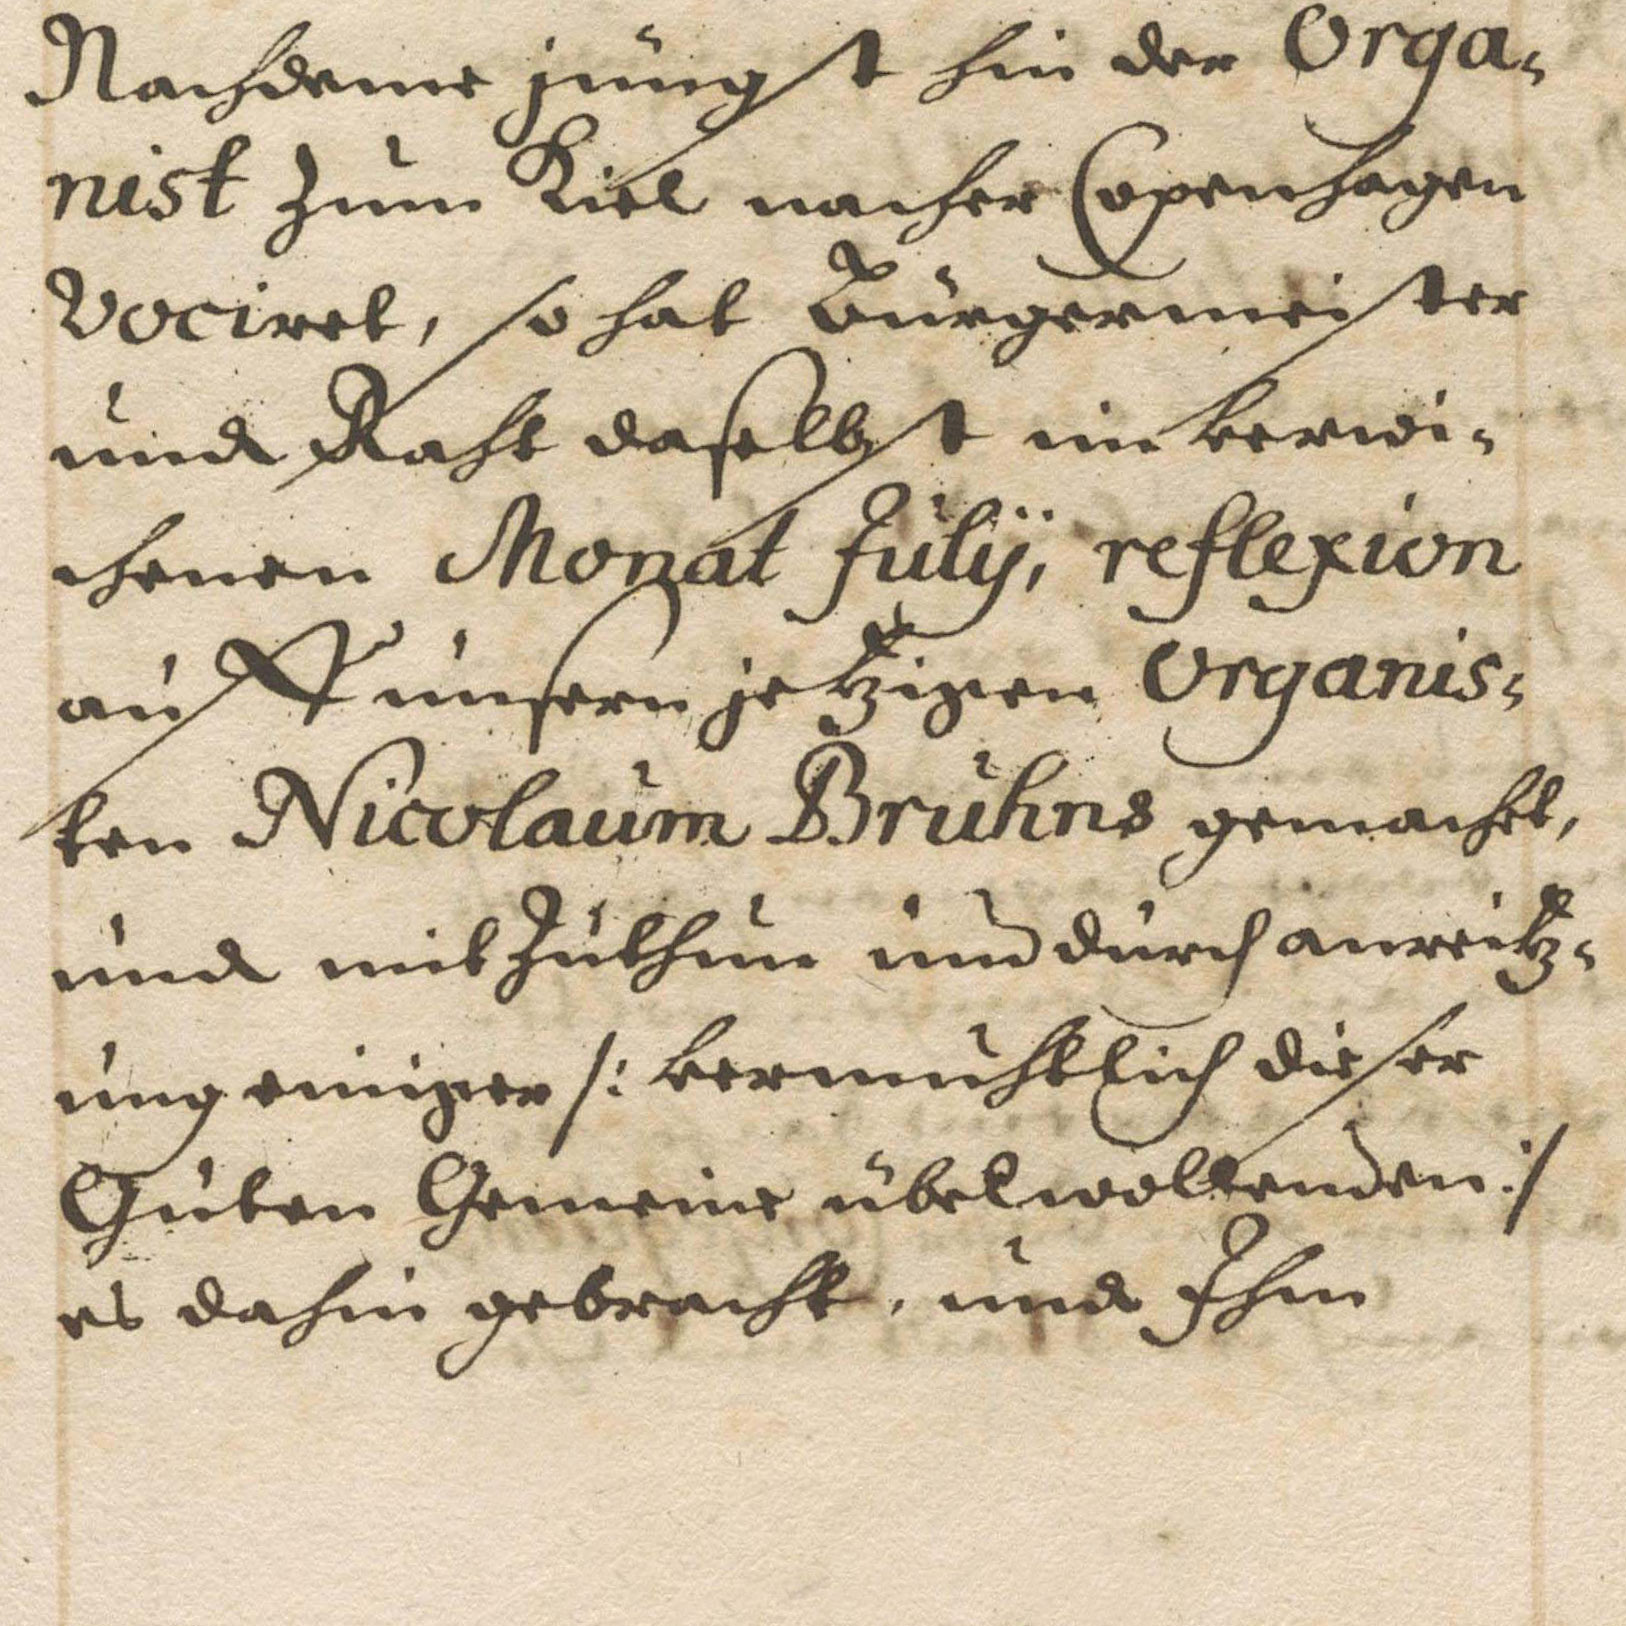 Nachdeme jüngst hin der Orga-
nist zum Kiel nacher Copenhagen
vociret, so hat Bürgermeister
und Raht daselbst im verwi-
chenen Monat Julij, reflexion
auff unsern jetzigen Organis-
ten Nicolaum Bruhns gemacht,
und mit Zuthun und durch anreitz-
ung einiger /: vermuhtlich dieser
Guten Gemeine übelwollenden :/
es dahin gebracht, und Ihm